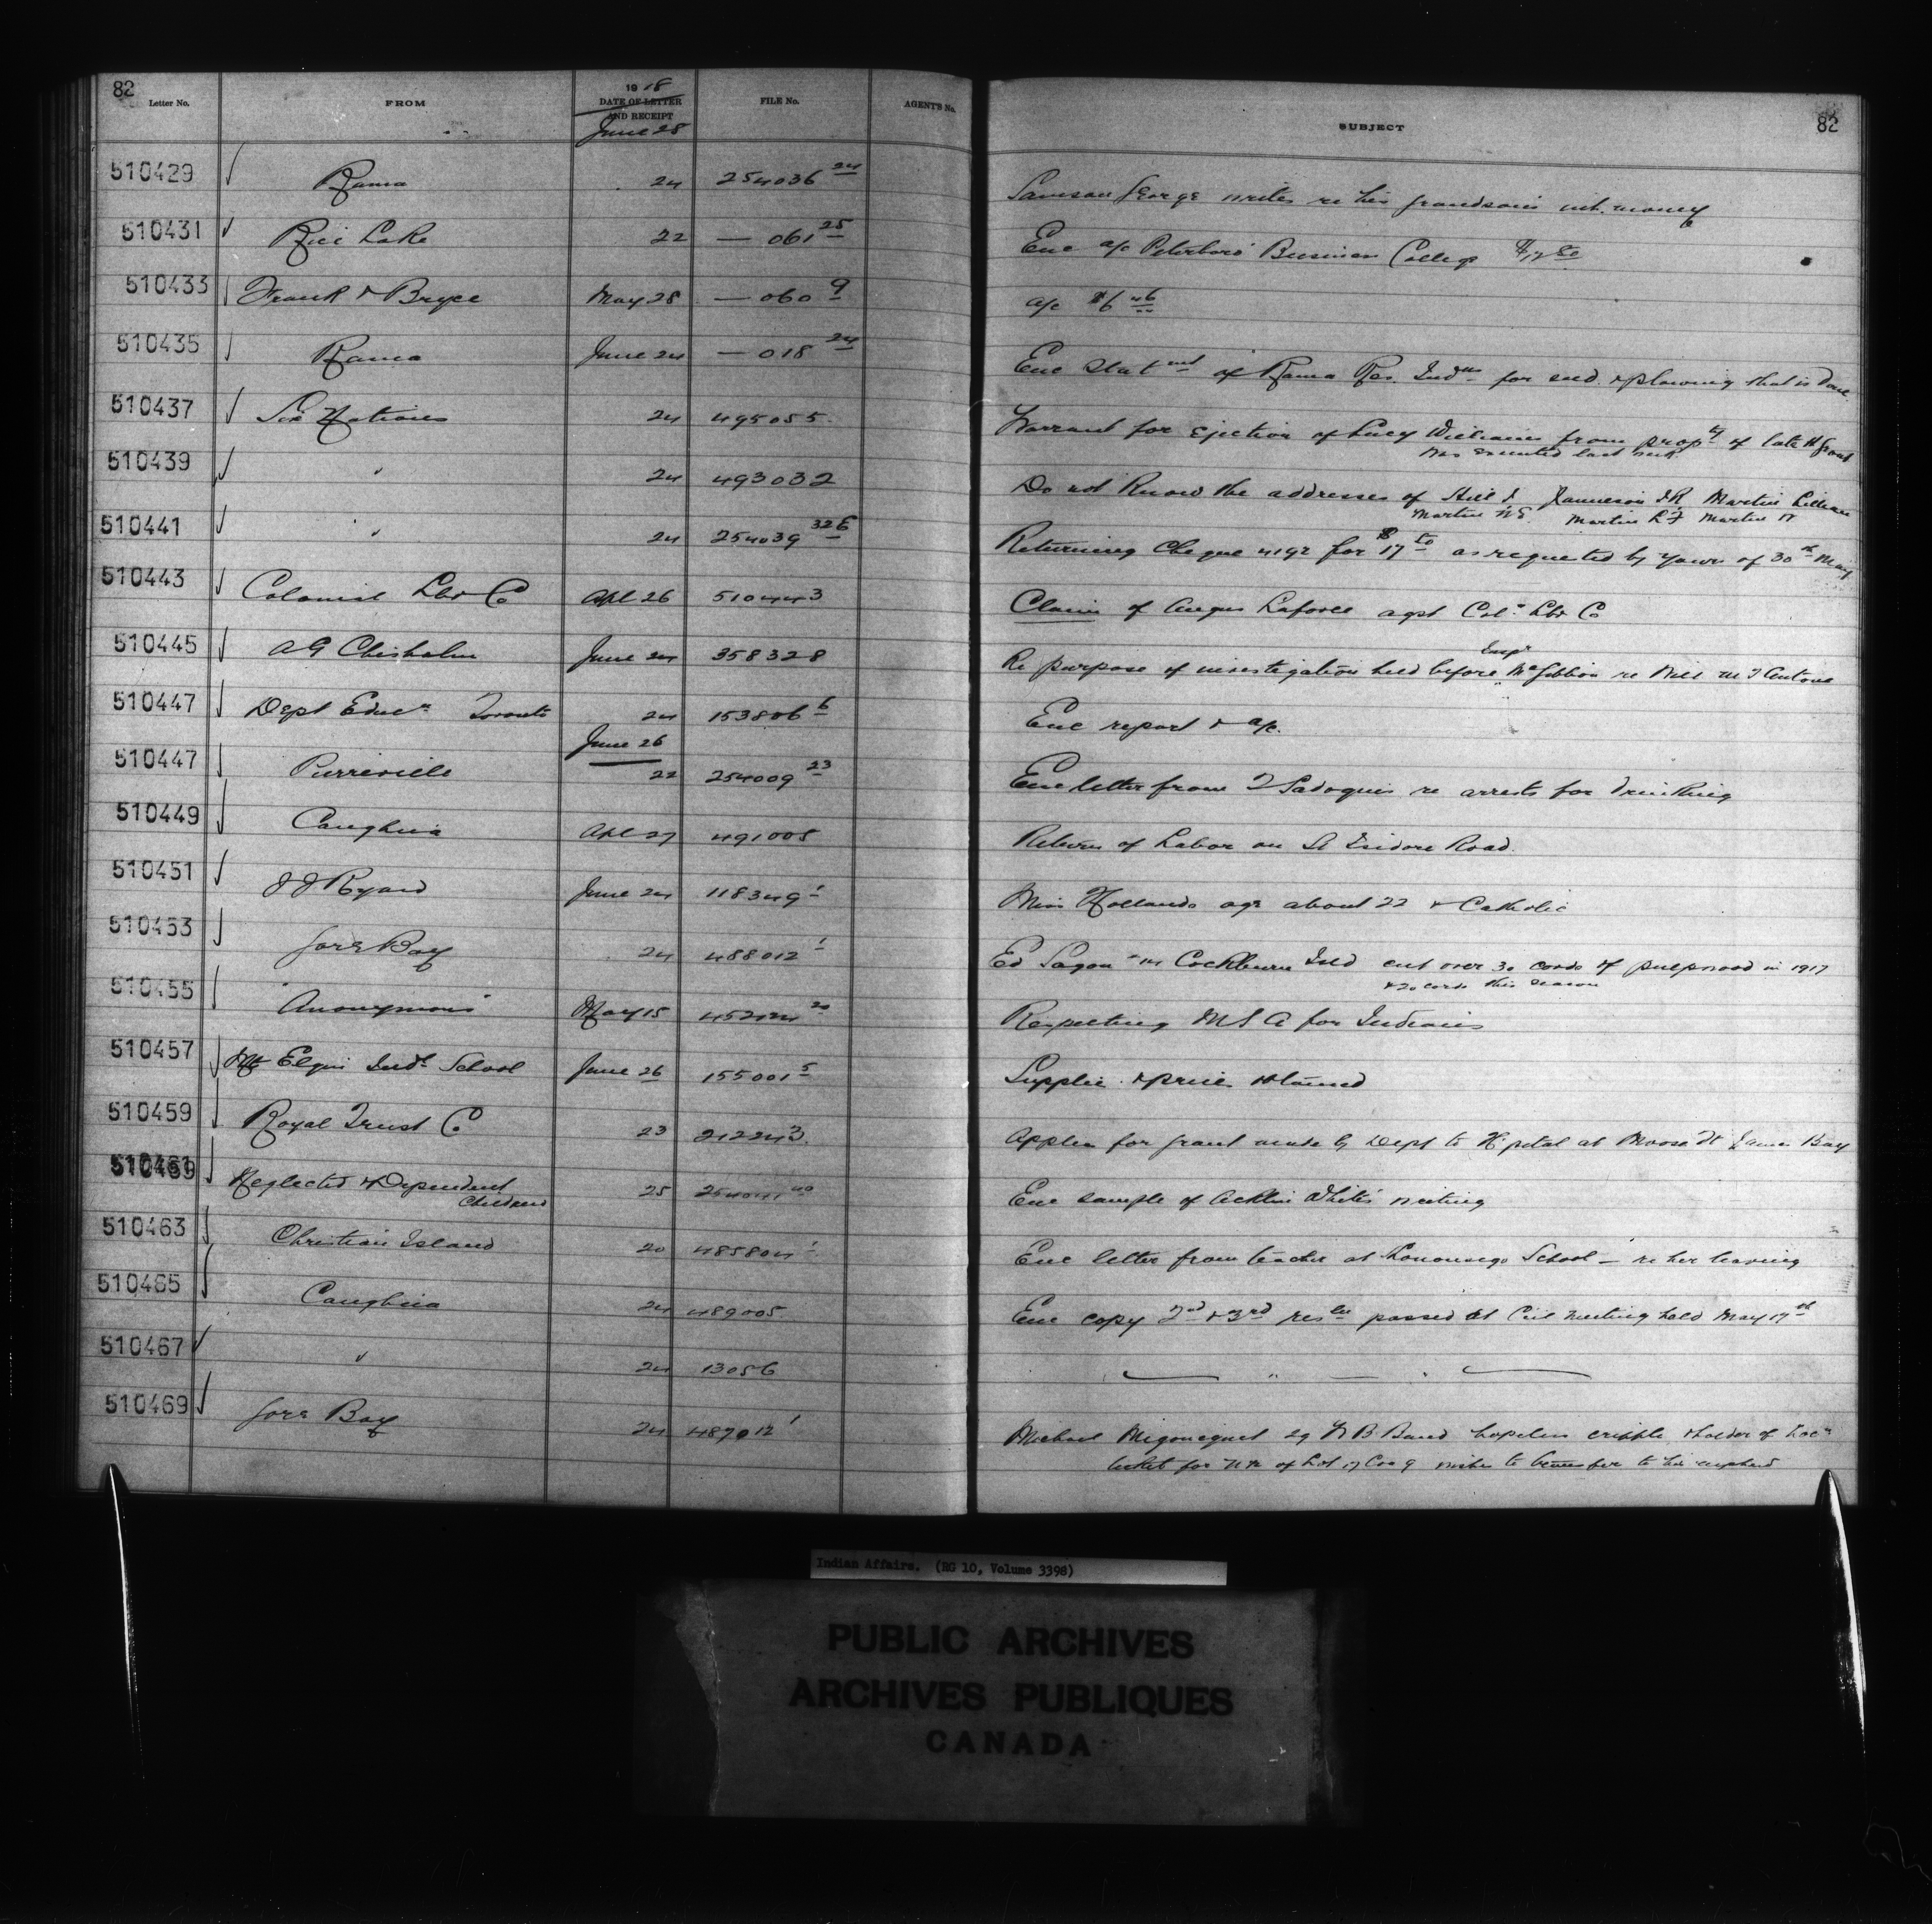 82
Letter No. FROM 1918 DATE OF LETTER AND RECEIPT FILE No. AGENT'S No. SUBJECT 82
June 25
510429 Rama 24 254036 24 Samson George writes re his grandson's int. money
510431 Rice Lake 22 — 061 25 Enc a/c Peterboro Business College
510433 Frank & Bryce May 28 — 060 9 a/c $6 46
510435 Rama June 24 — 018 24 Enc Statmt of Rama Res. Inds for seed & plowing that is done
510437 Six Nations 24 495055 Warrant for Ejection of Lucy Williams from propty of late H Grant
was executed last week
510439 " 24 493032 Do not Know the addresses of Hill J Jamieson JR Martin Lillian
Martin WE Martin LF Martin W
510441 " 24 254039 326 Returning Cheque 4192 for $17 50 as requested by yours of 30th May
510443 Colonial Lbr Co Apl 26 510443 Claim of Angus Laforce agst Col. Lbr Co
510445 AG Chisholm June 24 358328 Re purpose of investigation held before Inspr McGibbon re Will
510447 Dept Educn Toronto 24 153806 6 Enc report & a/c.
June 26
510447 Pierreville 22 254009 23 Enc letter from re arrests for drinking
510449 Caughna Apl 27 491005 Return of Labor on St Isidore Road
510451 J J Ryan June 24 118349 1 Miss Hollands age about 22 & Catholic
510453 Gore Bay 24 488012 1 Ed Sagon Cockburn Isld cut over 30 cords of pulpwood in 1917
& 20 cords this season
510455 "Anonymous" May 15 452124 20 Respecting M S A for Indians
510457 Mt Elgin Indl School June 26 155001 5 Supplies & prices
510459 Royal Trust Co 23 212243 Applen for grant made by Dept to Hspital at Moose Ft James Bay
510461 Neglected & Dependent 25 Enc sample of White's writing
Children
510463 Christian Island 20 485804 1 Enc letter from teacher at School — re her leaving
510465 Caughna 24 489005 Enc copy 2nd & 3rd reslu passed at Cncil meeting held May 17th
510467 " 24 13056 " — "
510469 Gore Bay 24 487012 1 Michael 29 W B Band hopeless cripple & holder of Locn
ticket for of Lot 17 Con 9 wishes to transfer to his nephew
Indian Affairs. (RG 10, Volume 3398)
PUBLIC ARCHIVES
ARCHIVES PUBLIQUES
CANADA